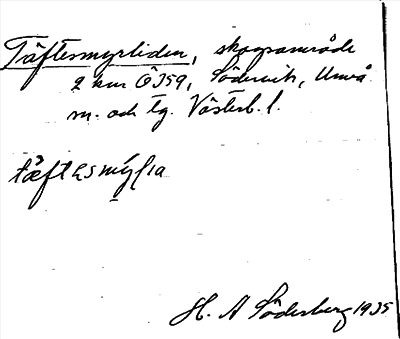 Täftesmyrliden, skogsområde
2 km Ö 359, Södervik, Umeå
sn. och tg. Västerb. l.
H. A Söderberg 1935